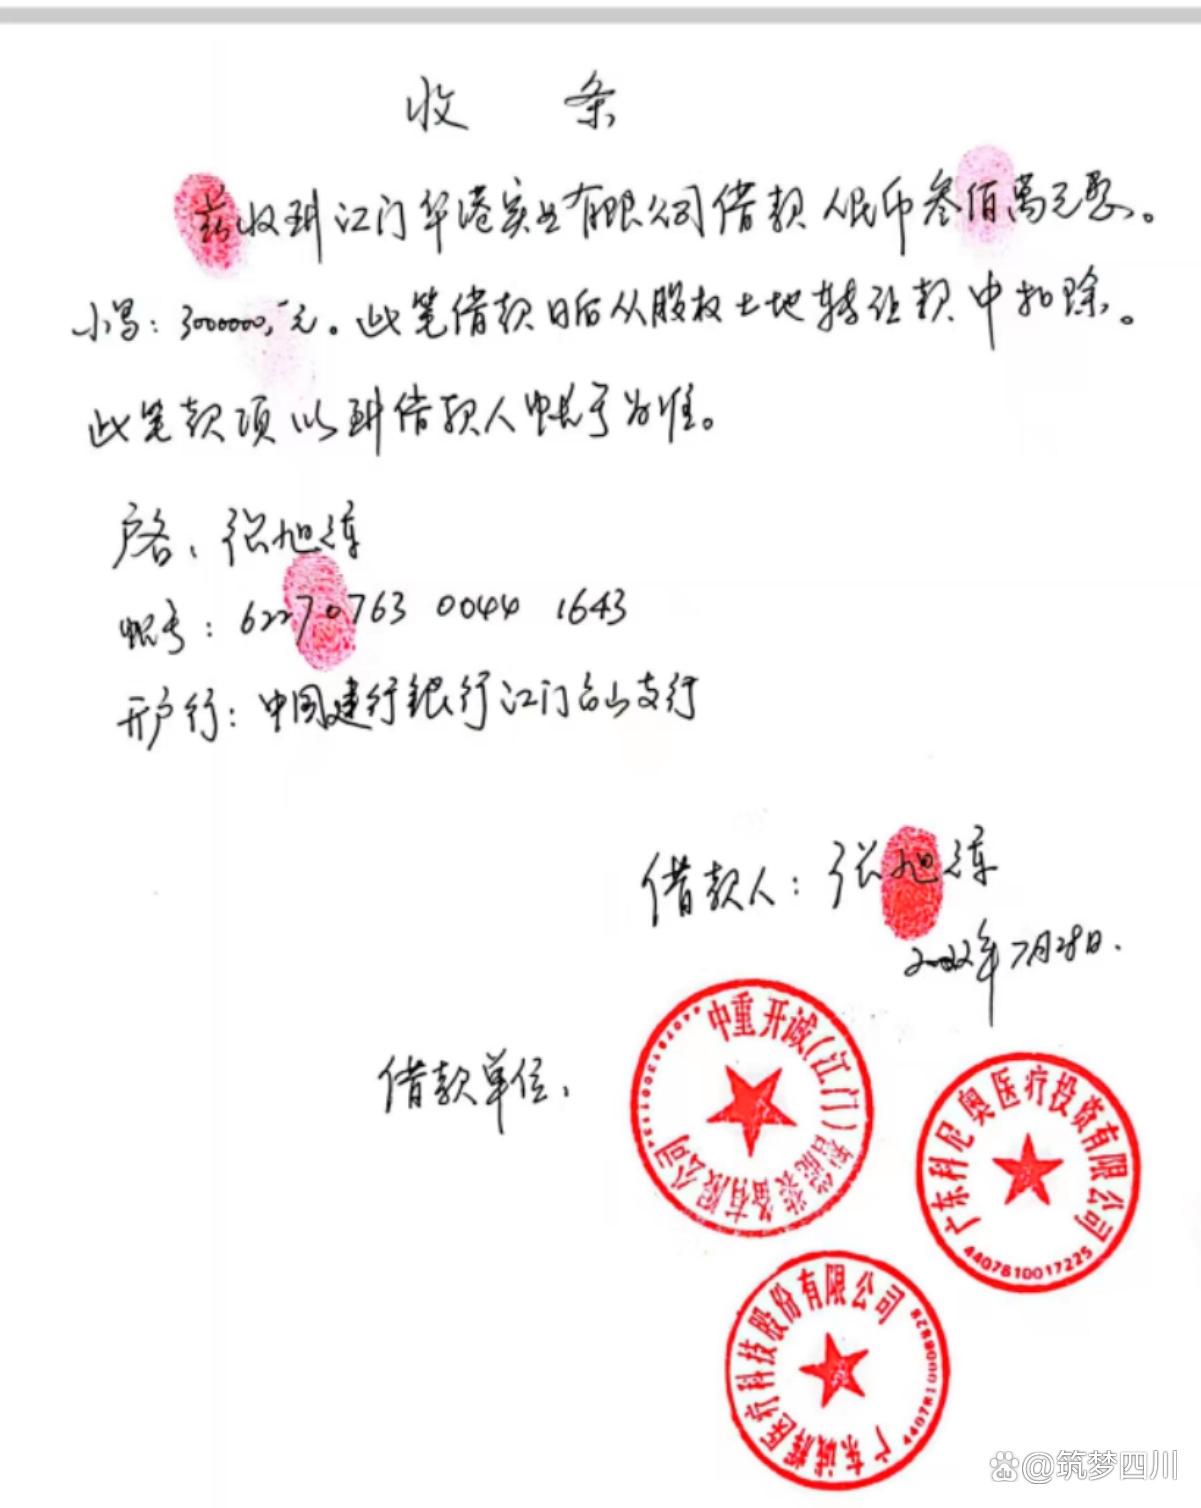 收 条
兹收到江门华港实业有限公司借款人民币叁佰萬元整。
小写：3000000,元。此笔借款日后从股权土地转让款中扣除。
此笔款项以到借款人帐号为准。
户名：张旭
帐号：62270763 0044 1643
开户行：中国建行银行江门台山支行
借款人：张旭
2022年7月28日.
借款单位：
中重开诚（江门）智能装备有限公司
广东科尼奥医疗投资有限公司
4407810017225
广东诚辉医疗科技股份有限公司
4407810008828
@筑梦四川